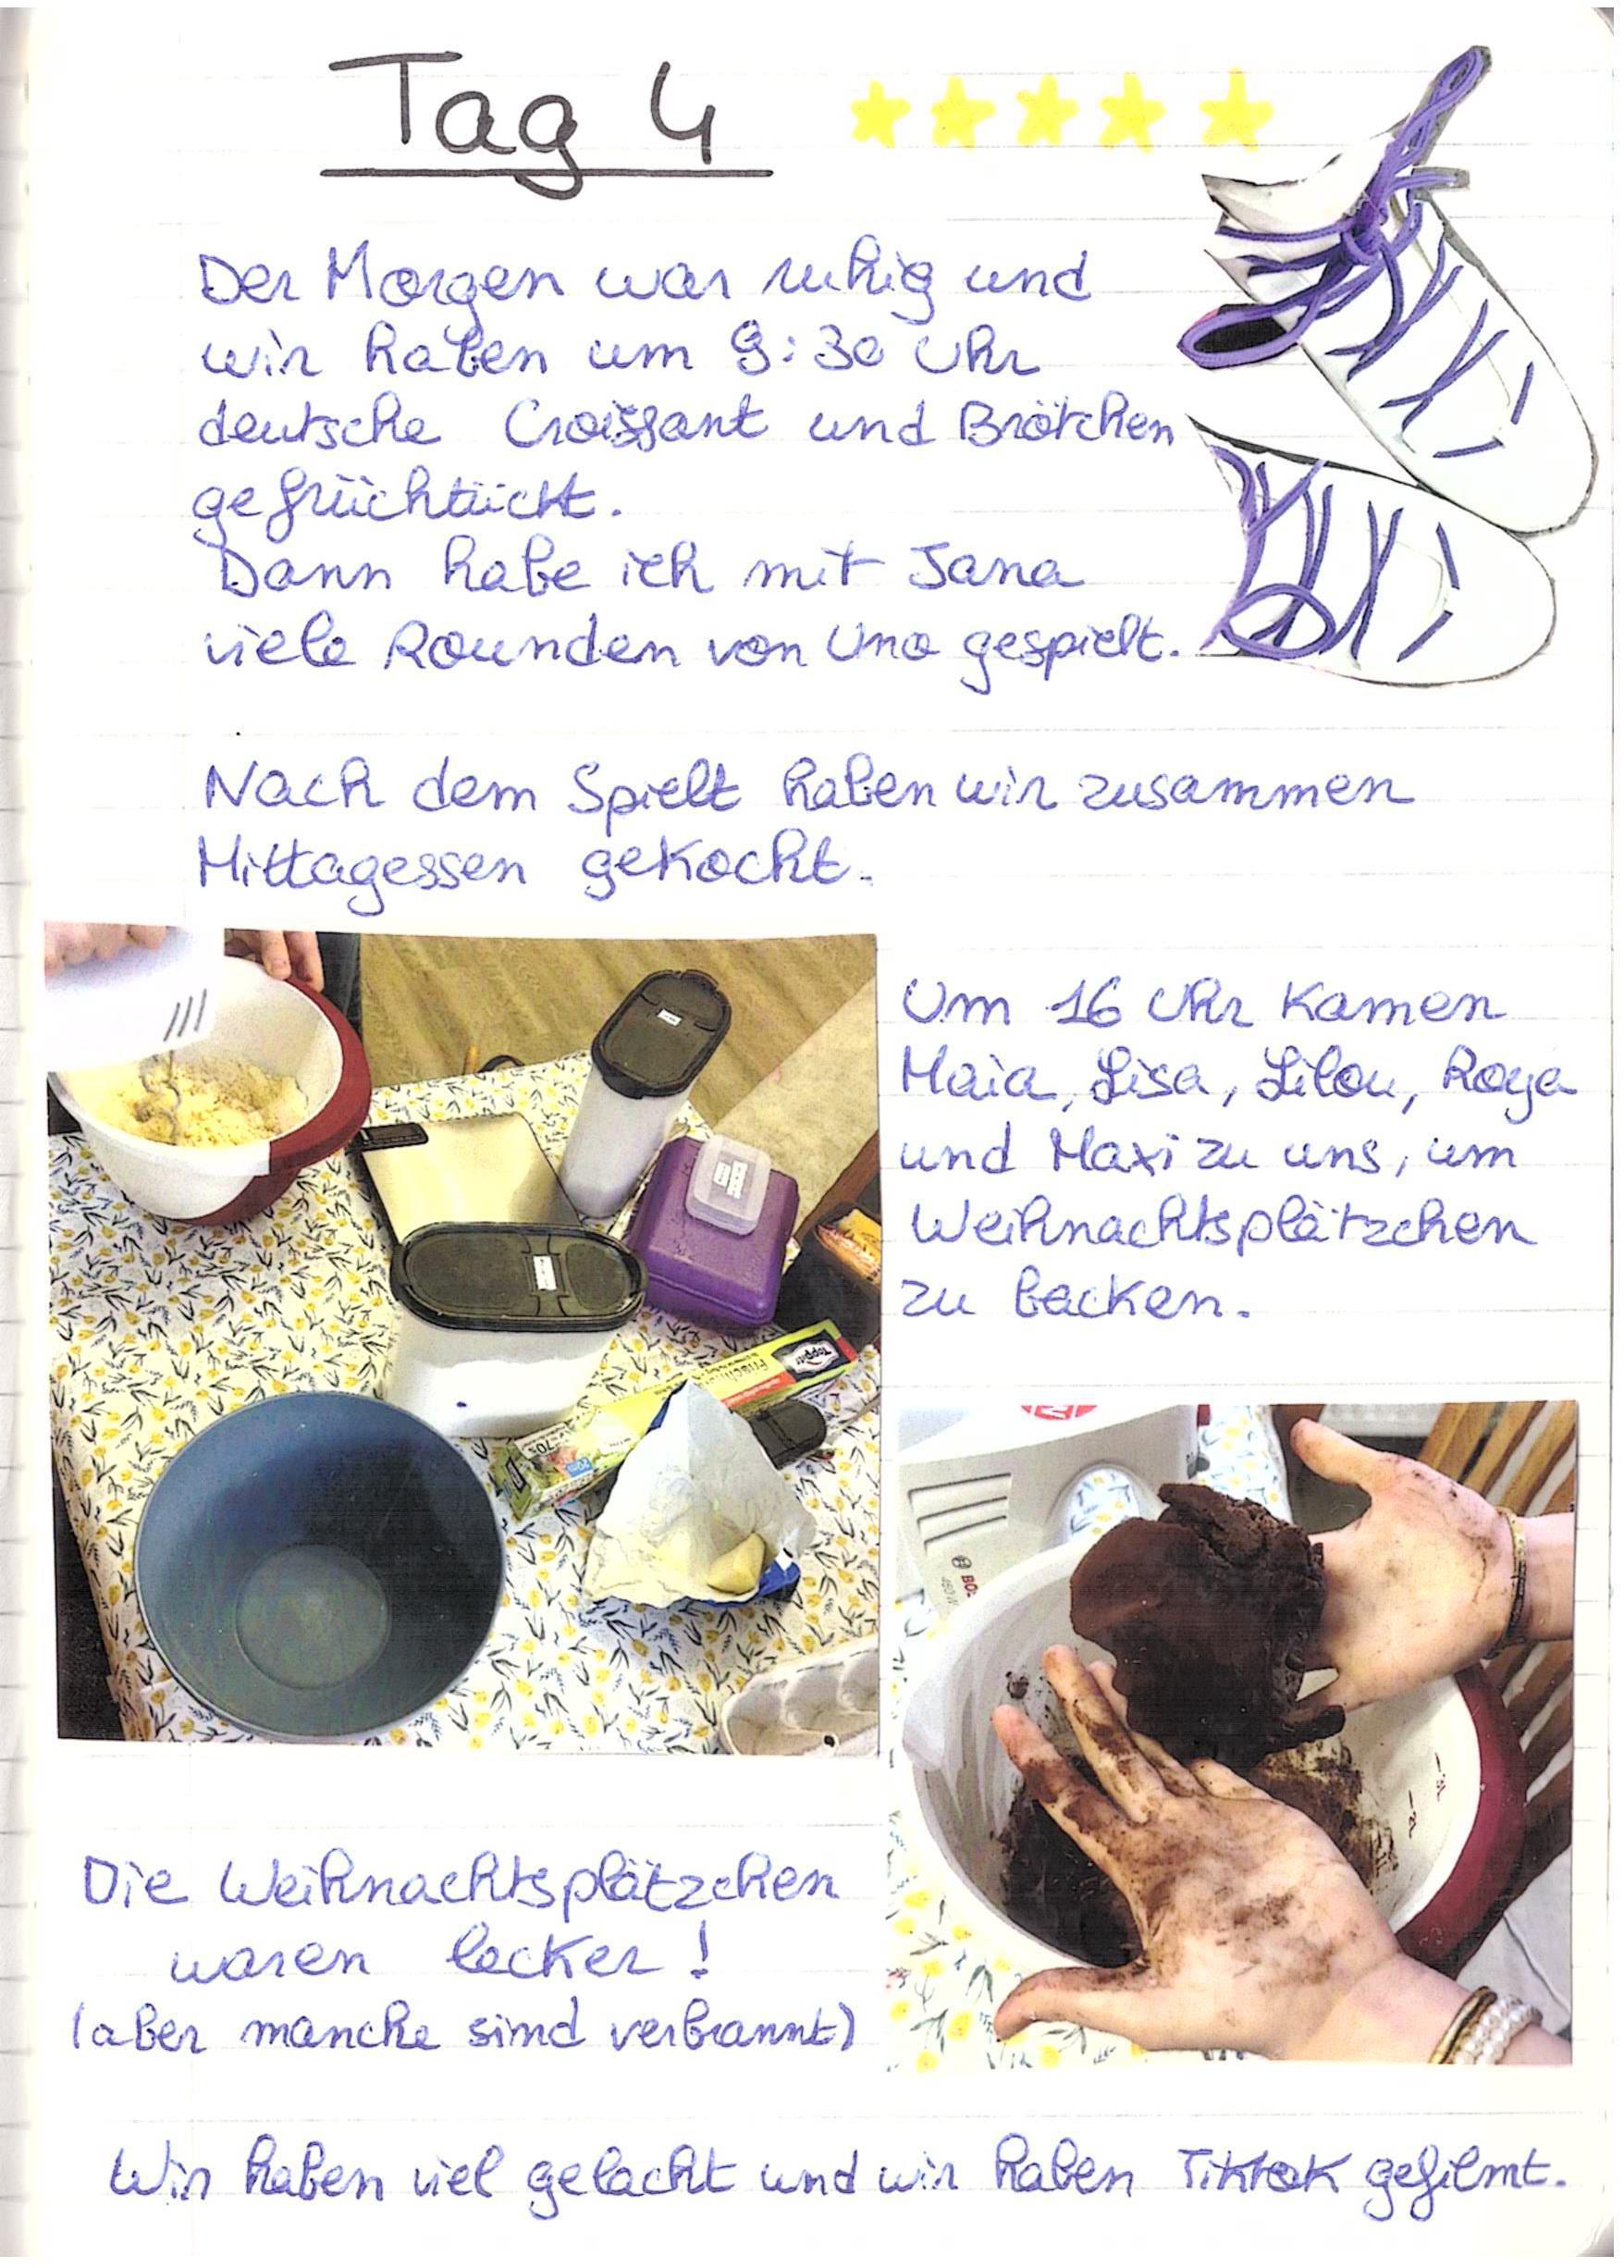 Tag 4
Der Morgen war ruhig und
wir haben um 9:30 Uhr
deutsche Croissant und Brötchen
gefrüchtückt.
Dann habe ich mit Jana
viele Rounden von Uno gespielt.
Nach dem Spielt haben wir zusammen
Mittagessen gekocht.
Um 16 Uhr kamen
Maia, Lisa, Lilou, Roya
und Maxi zu uns, um
Weihnachtsplätzchen
zu backen.
Toppits
Die Weihnachtsplätzchen
waren lecker!
(aber manche sind verbrannt)
Wir haben viel gelacht und wir haben Tiktok gefilmt.